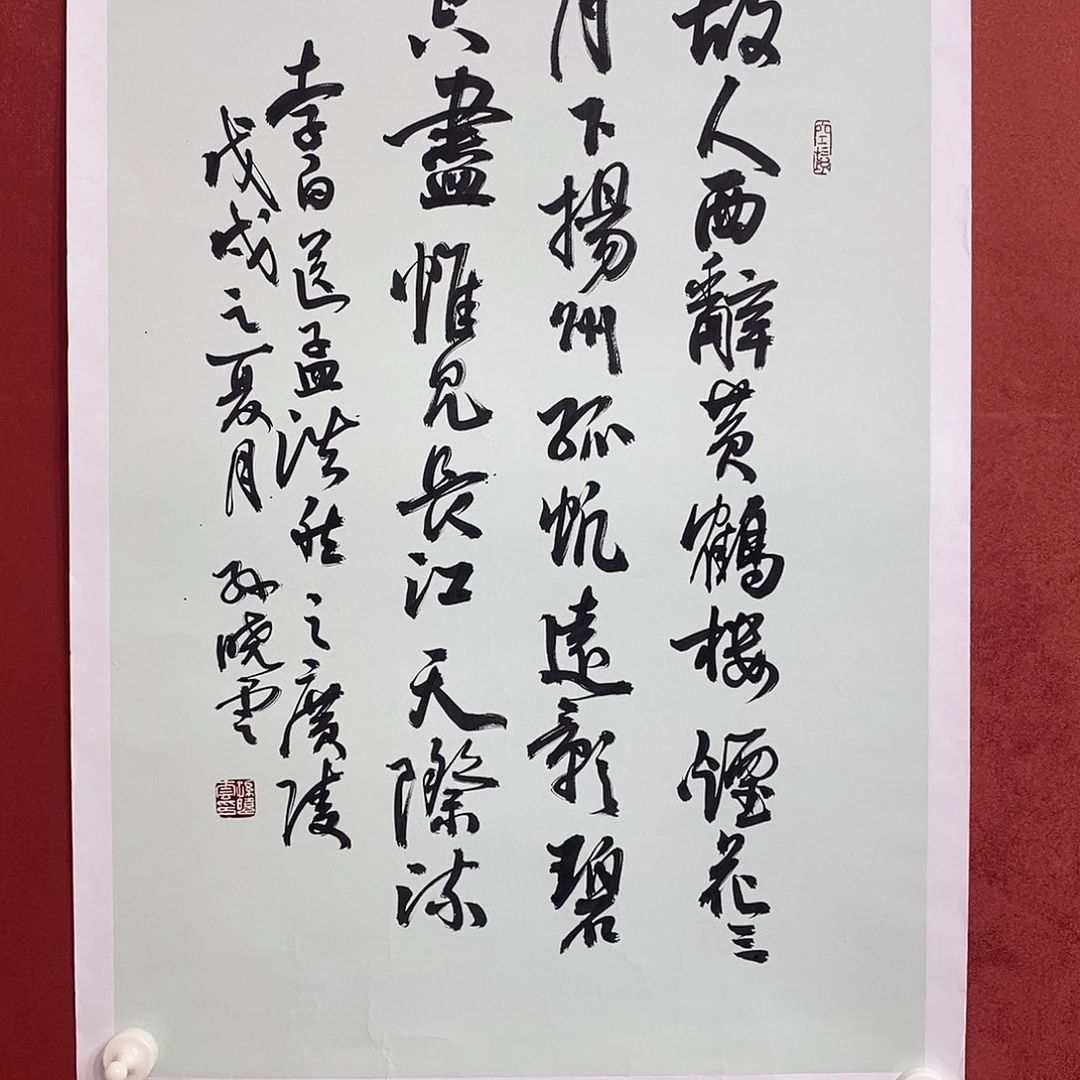 故人西辭黃鶴樓煙花三
月下揚州孤帆遠影碧
空盡惟見長江天際流
李白送孟浩然之廣陵
戊戌之夏月 孫曉雲
孫曉雲印